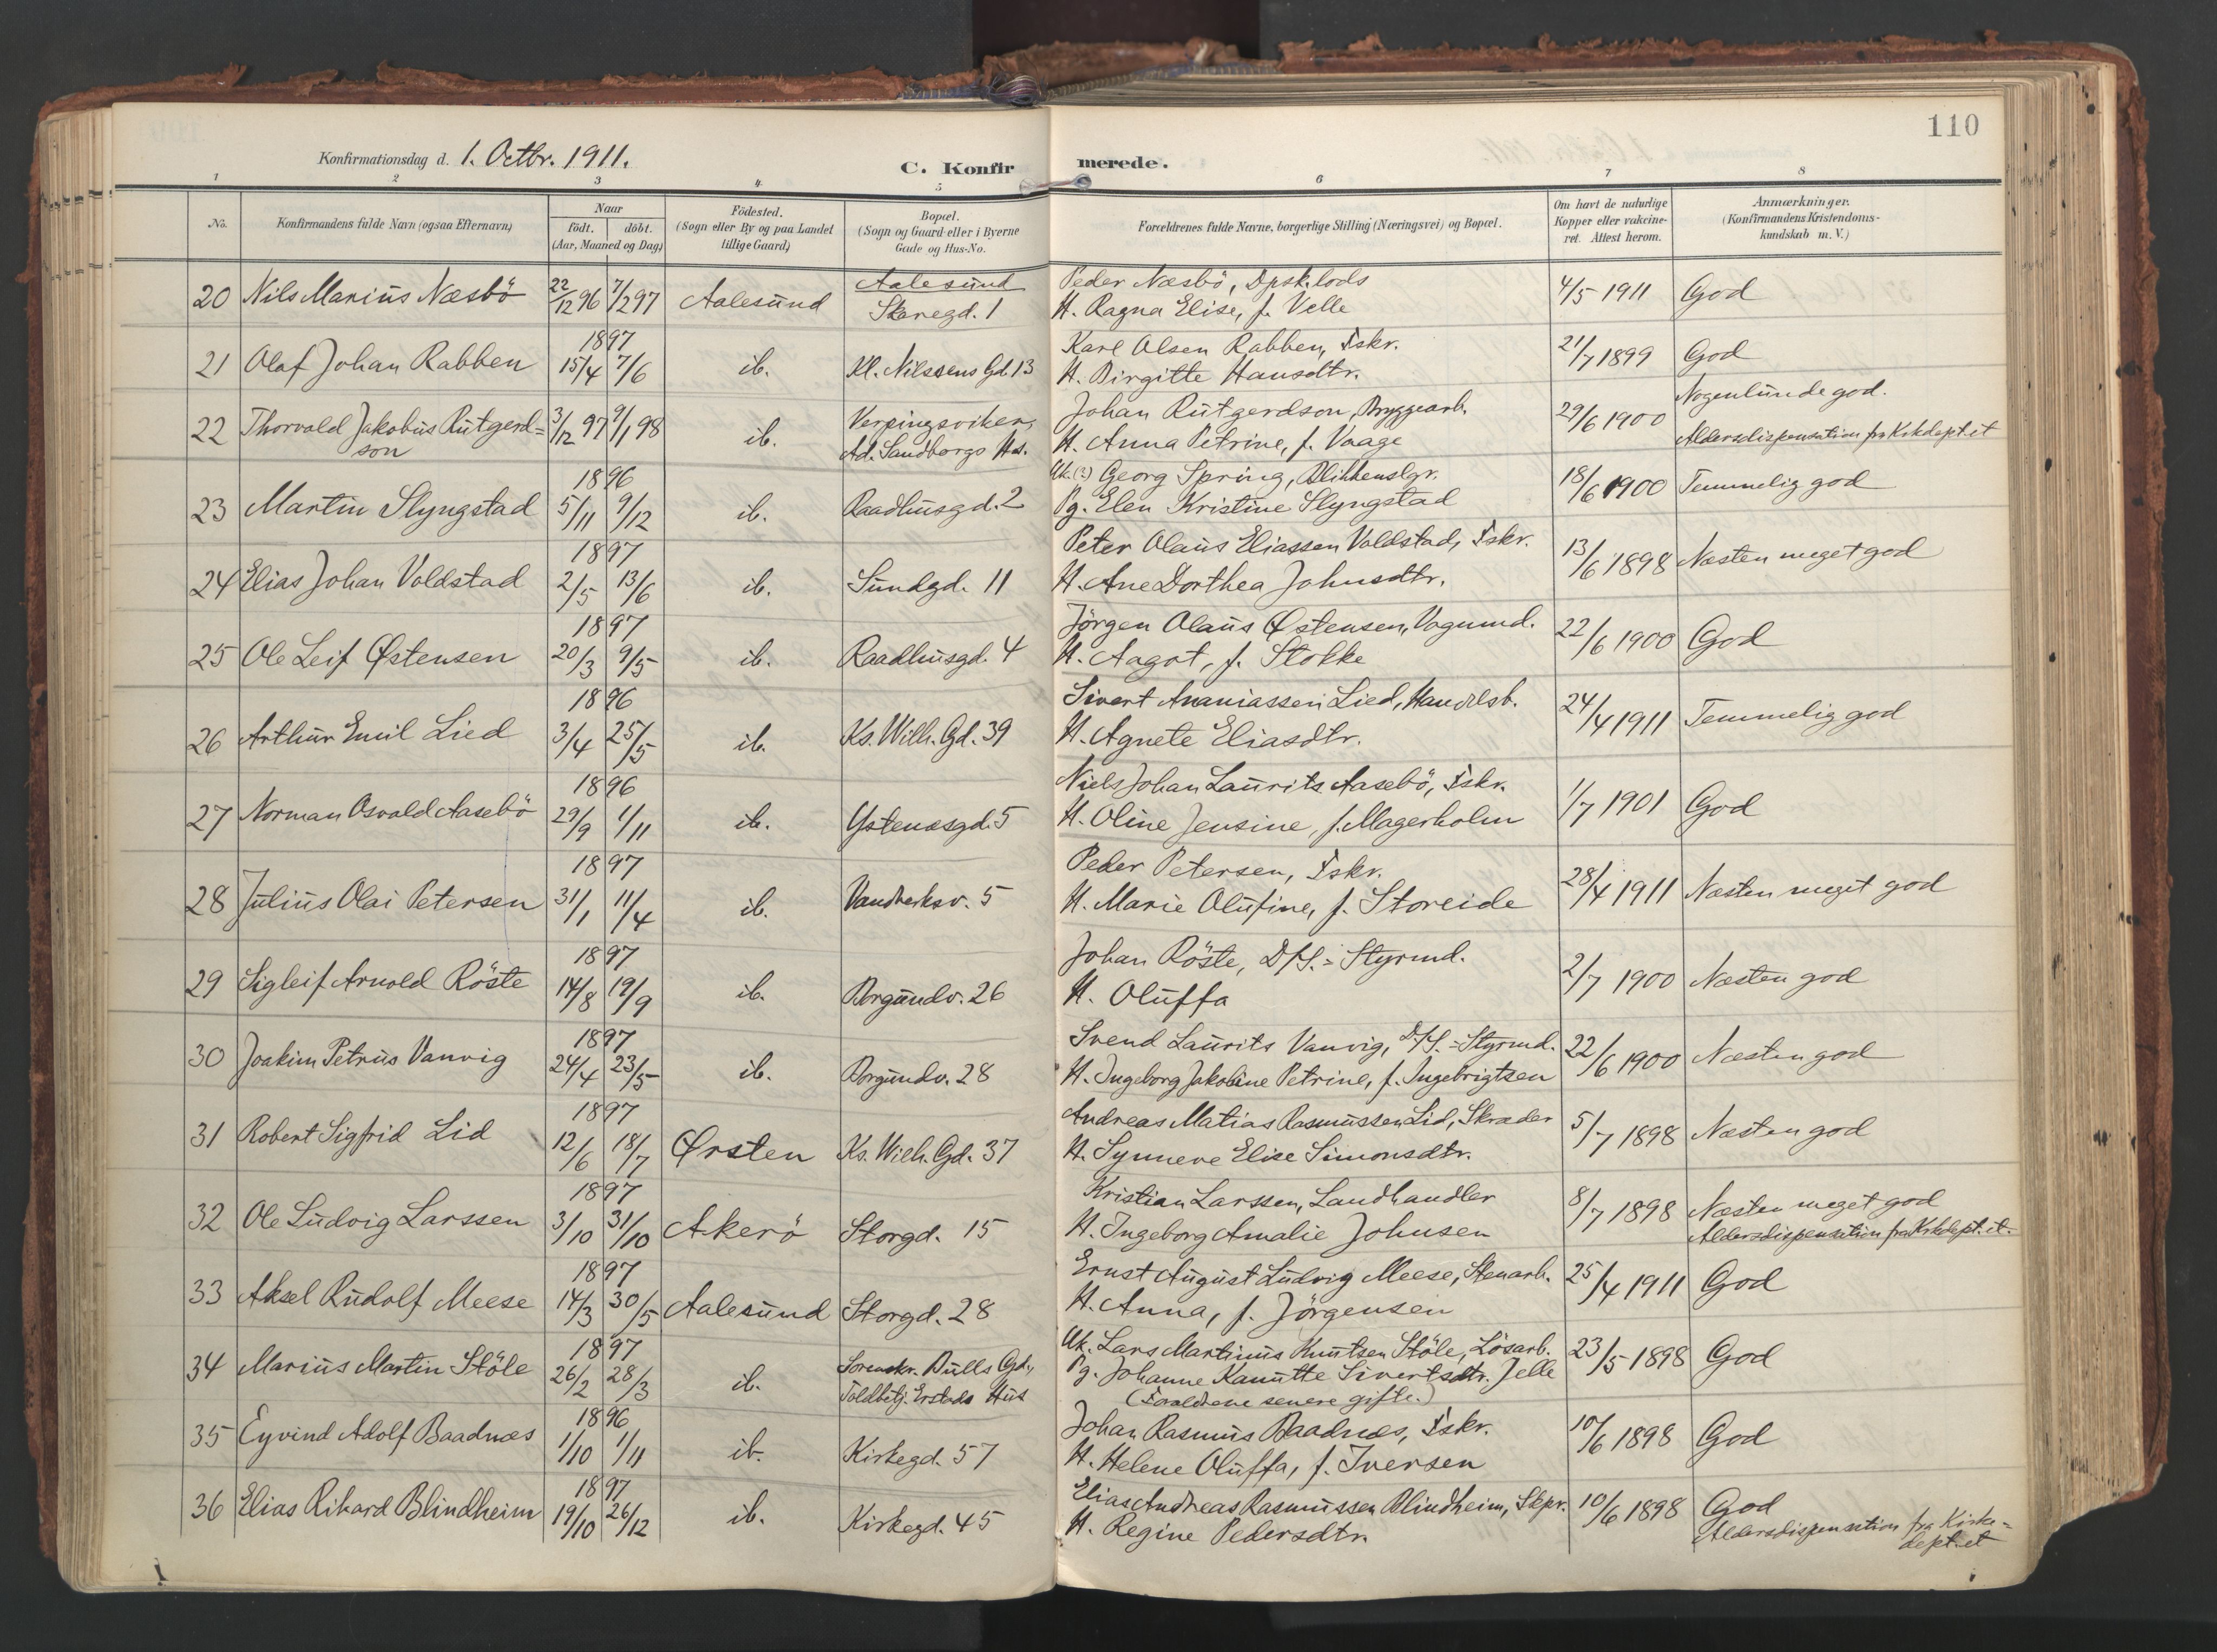 110
Konfirmationsdag d. 1. Octbr. 1911.
C. Konfirmerede.
1 2 3 4 5 6 7 8
No.
Konfirmandens fulde Navn (ogsaa Efternavn)
Naar
födt. döbt.
(Aar, Maaned og Dag)
Födested.
(Sogn eller By og paa Landet
tillige Gaard)
Bopæl.
(Sogn og Gaard eller i Byerne
Gade og Hus-No.
Forældrenes fulde Navne, borgerlige Stilling (Næringsvei) og Bopæl.
Om havt de naturlige
Kopper eller vakcine-
ret. Attest herom.
Anmærkninger.
(Konfirmandens Kristendoms-
kundskab m. V.)
20 Nils Marius Næsbö 22/12 96 7/2 97 Aalesund Aalesund
Skaregd. 1
Peder Næsbö, Dpsk. lods
H. Ragna Elise, f. Velle
4/5 1911 God
21 Olaf Johan Rabben 1897 15/4 7/6 ib. Kl. Nilssens Gd 13
Karl Olsen Rabben, Fskr.
H. Birgitte Hansdtr.
21/7 1899 God
22 Thorvald Jakobus Rutgerd=
son
3/12 97 9/1 98 ib. Verpingsviken,
Ad. Sandborgs Hus.
Johan Rutgerdson, Bryggearb.
H. Anna Petrine, f. Vaage
29/6 1900 Nogenlunde god.
Aldersdispensation fra Kirkdept.et
23 Martin Slyngstad 1896 5/11 9/12 ib. Raadhusgd. 2
Uk. (?) Georg Spring, Blikkenslgr.
Pg. Elen Kristine Slyngstad
18/6 1900 Temmelig god
24 Elias Johan Valdstad 1897 2/5 13/6 ib. Sundgd. 11
Peter Olaus Eliassen Valdstad, Fskr.
H. Ane Dorthea Johnsdtr.
13/6 1898 Næsten meget god
25 Ole Leif Østensen 1897 20/3 9/5 ib. Raadhusgd. 4
Jörgen Olaus Østensen, Vognmd.
H. Aagot, f. Stokke
22/6 1900 God
26 Arthur Emil Lied 1896 3/4 25/5 ib. Ks. Wilh. Gd. 39
Sivert Ananiassen Lied, Handelsb.
H. Agnete Eliasdtr.
24/4 1911 Temmelig god
27 Norman Osvald Aasebö 1896 29/9 1/11 ib. Ystenæsgd. 5
Niels Johan Laurits Aasebö, Fskr.
H. Oline Jensine, f. Magerholm
1/7 1901 God
28 Julius Olai Petersen 1897 31/1 11/4 ib. Vandverksv. 5
Peder Petersen, Fskr.
H. Marie Olufine, f. Storeide
28/4 1911 Næsten meget god
29 Sigleif Arnold Röste 1897 14/8 19/9 ib. Borgundv. 26
Johan Röste, D/S.=Styrmd.
H. Oluffa
2/7 1900 Næsten god
30 Joakim Petrus Vanvig 1897 24/4 23/5 ib. Borgundv. 28
Svend Laurits Vanvig, D/S.=Styrmd.
H. Ingeborg Jakobine Petrine, f. Ingebrigtsen
22/6 1900 Næsten god
31 Robert Sigfrid Lid 1897 12/6 18/7 Ørsten Ks. Wilh. Gd. 37
Andreas Matias Rasmussen Lid, Skræder
H. Synneve Elise Simonsdtr.
5/7 1898 Næsten god
32 Ole Ludvig Larssen 1897 3/10 31/10 Akerö Storgd. 15
Kristian Larssen, Landhandler
H. Ingeborg Amalie Johnsen
8/7 1898 Næsten meget god
Aldersdispensation fra Kirkdept.et.
33 Aksel Rudolf Meese 1897 14/3 30/5 Aalesund Storgd. 28
Ernst August Ludvig Meese, Stenarb.
H. Anna, f. Jörgensen
25/4 1911 God
34 Marius Martin Stöle 1897 26/2 28/3 ib. Sorenskr. Bulls Gd.,
Toldbetj. Erstads Hus
Uk. Lars Martinus Knutsen Stöle, Lösarb.
Pg. Johanne Kanutte Sivertsdtr. Jelle
(Forældrene senere gifte.)
23/5 1898 God
35 Eyvind Adolf Baadnæs 1896 1/10 1/11 ib. Kirkegd. 57
Johan Rasmus Baadnæs, Fskr.
H. Helene Oluffa, f. Iversen
10/6 1898 God
36 Elias Rikard Blindheim 1897 19/10 26/12 ib. Kirkegd. 45
Elias Andreas Rasmussen Blindheim, Skpr.
H. Regine Pedersdtr.
10/6 1898 God
Aldersdispensation fra Kirke=
dept.et